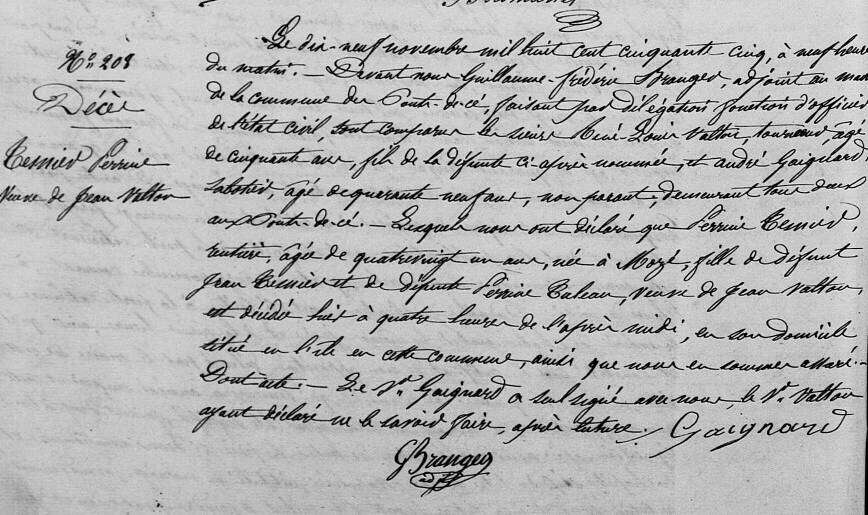 No 208
Décès
Tessier Perrine
Veuve de Jean Valton
Le dix-neuf novembre mil huit cent cinquante cinq, à neuf heures
du matin. — Devant nous Guillaume-Frédéric Branger, adjoint au maire
de la commune des Ponts-de-cé, faisant par délégation fonction d'officier
de l'état civil, sont comparus les sieurs René-Louis Valton, tourneur, âgé
de cinquante ans, fils de la défunte ci-après nommée, et andré Gaignard
sabotier, âgé de quarante neuf ans, non parent; demeurant tous deux
aux Ponts-de-cé. — Lesquels nous ont déclaré que Perrine Tessier,
rentière, âgée de quatrevingt un ans, née à Mozé, fille de défunt
Jean Tessier et de défunte Perrine , Veuve de Jean Valton,
est décédée hier à quatre heures de l'après midi, en son domicile
situé en l'isle en cette commune, ainsi que nous en sommes assuré. —
Dont acte. — Le Sr. Gaignard a seul signé avec nous, le Sr. Valton
ayant déclaré ne le savoir faire, après lecture. Gaignard
GBranger
adjt